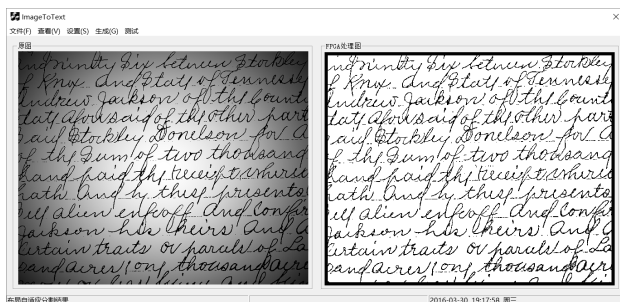 ImageToText
文件(F) 查看(V) 设置(S) 生成(G) 测试
原图
FPGA处理图
and ninty six between Stockley
of Knox and State of Tennessee
Andrew Jackson of the County
State aforesaid of the other part
said Stockley Donelson for a
of the Sum of two thousand
hand paid the receipt whereof
hath and by these presents
self alien enfeoff and confir
Jackson his heirs and a
certain traits or parcels of La
sand acres (one thousand acre
and ninty six between Stockley
of Knox and State of Tennessee
Andrew Jackson of the County
State aforesaid of the other part
said Stockley Donelson for a
of the Sum of two thousand
hand paid the receipt whereof
hath and by these presents
self alien enfeoff and confir
Jackson his heirs and a
certain traits or parcels of La
sand acres (one thousand acre
布局自适应分割结果
2016-03-30 19:17:58 周三